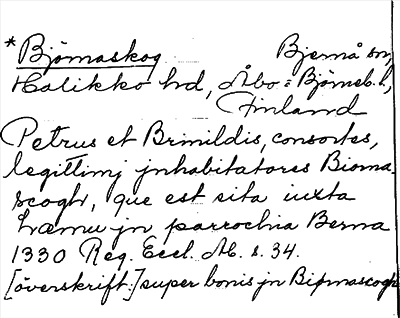 *Björnaskog Bjernå sn,
Halikko hd, Åbo-Björneb. l,
Finland
Petrus et Brinildis, consortes,
legittimj jnhabitatores Biorna-
scogh, que est sita iuxta
Læmu jn parrochia Berna
1330 Reg. Eccl. Ab. s. 34.
[överskrift:] super bonis jn Biørnascogh